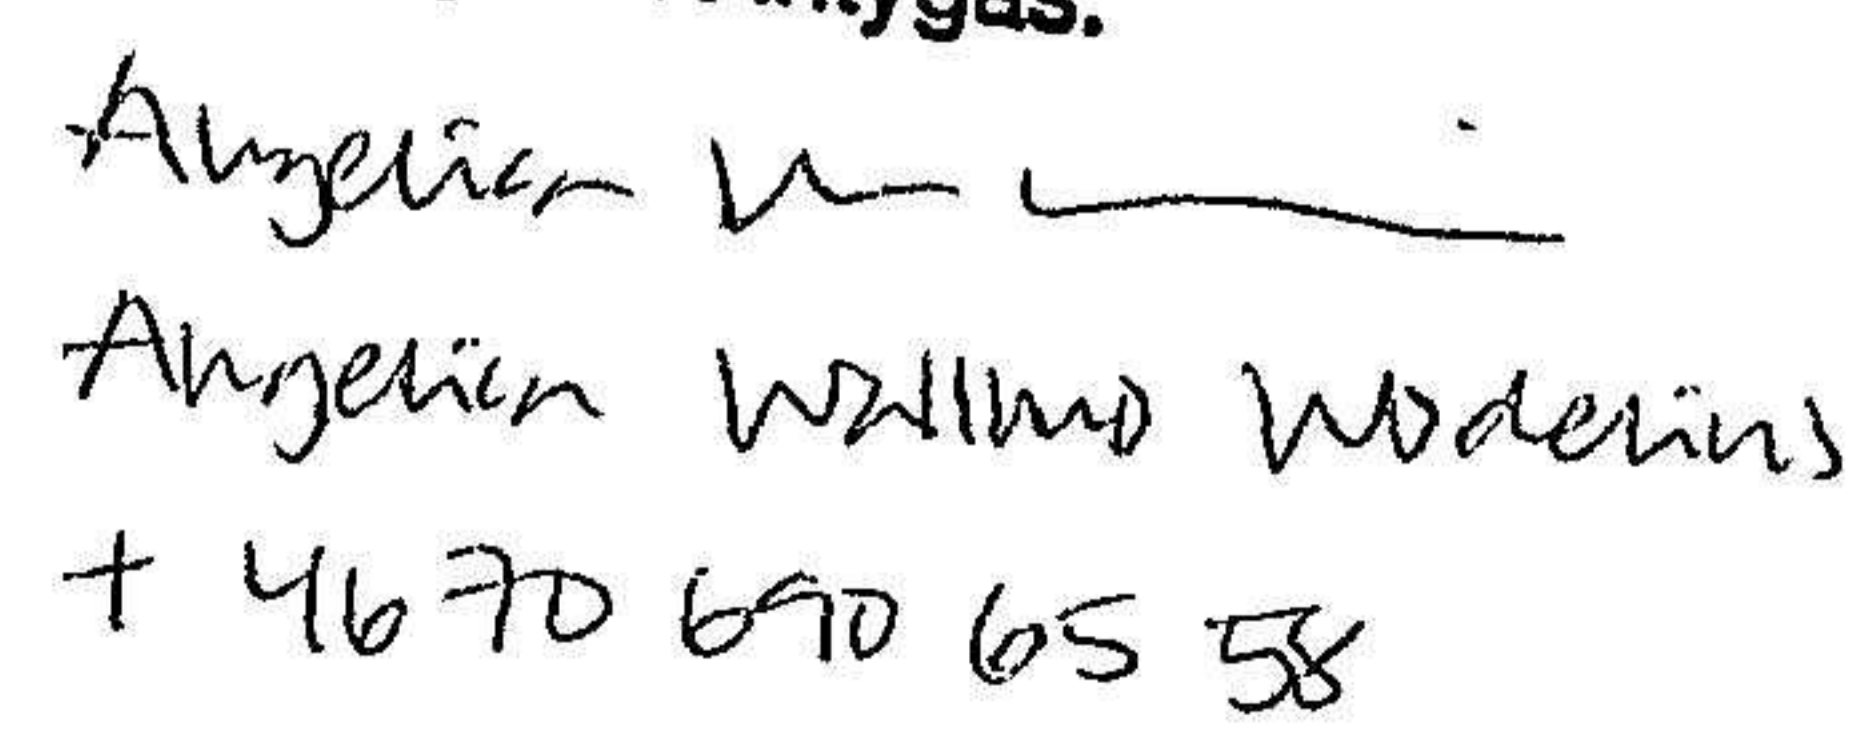 Angelica
Angelica Wallmo Woderius
+ 46 70 690 65 58